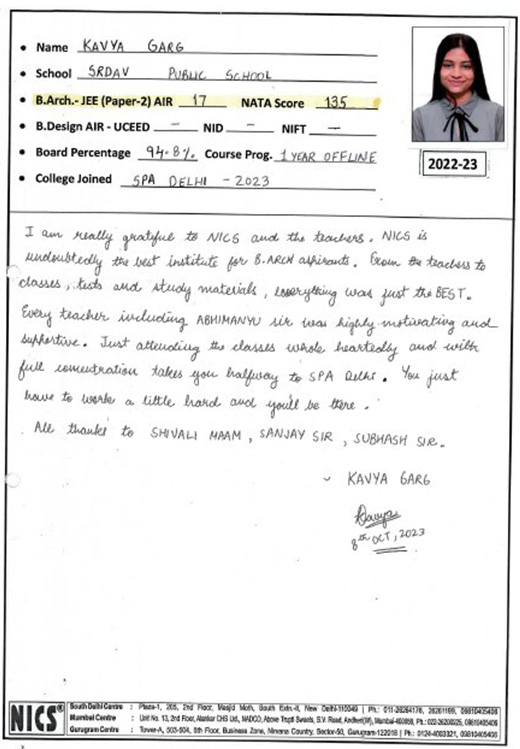 Name KAVYA GARG
School SRDAV PUBLIC SCHOOL
B.Arch.- JEE (Paper-2) AIR 17 NATA Score 135
B.Design AIR - UCEED - NID - NIFT -
Board Percentage 94.8% Course Prog. 1 YEAR OFFLINE
College Joined SPA DELHI - 2023
2022-23
I am really grateful to NICS and the teachers. NICS is
undoubtedly the best institute for B.ARCH aspirants. From the teachers to
classes, tests and study materials, everything was just the BEST.
Every teacher including ABHIMANYU sir was highly motivating and
supportive. Just attending the classes whole heartedly and with
full concentration takes you halfway to SPA Delhi. You just
have to work a little hard and you'll be there.
All thanks to SHIVALI MAAM, SANJAY SIR, SUBHASH SIR.
~ KAVYA GARG
Kavya
8th OCT, 2023
NICS®
South Delhi Centre : Plaza-1, 205, 2nd Floor, Masjid Moth, South Extn.-II, New Delhi-110049 | Ph.: 011-26264178, 26261169, 09810405406
Mumbai Centre : Unit No. 13, 2nd Floor, Alankar CHS Ltd., MADCO, Above Trupti Sweets, S.V. Road, Andheri(W), Mumbai-400058, Ph.: 022-26200225, 09810405406
Gurugram Centre : Tower-A, 503-504, 5th Floor, Business Zone, Nirvana County, Sector-50, Gurugram-122018 | Ph.: 0124-4003321, 09810405406